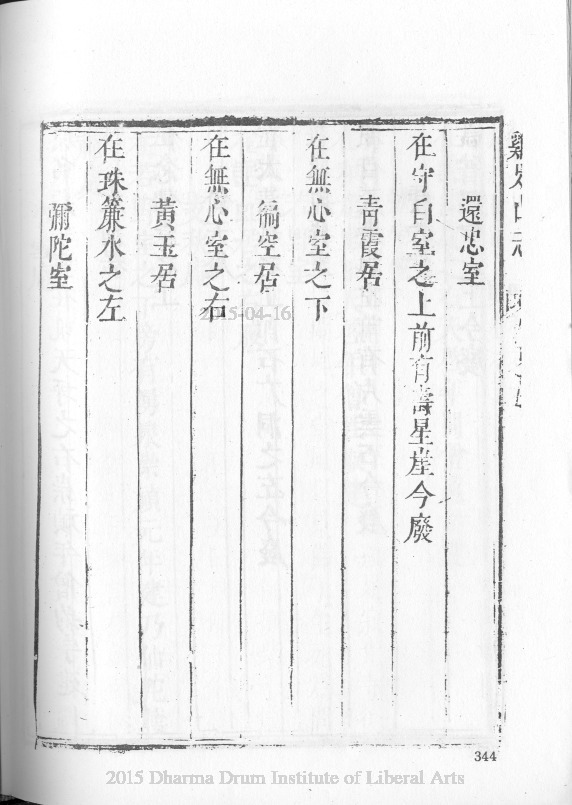 還忠室
在守白室之上前有壽星崖今廢
青霞居
在無心室之下
在無心室之右
黃玉居
在珠簾水之左
彌陀室
344
2015-04-16
2015 Dharma Drum Institute of Liberal Arts